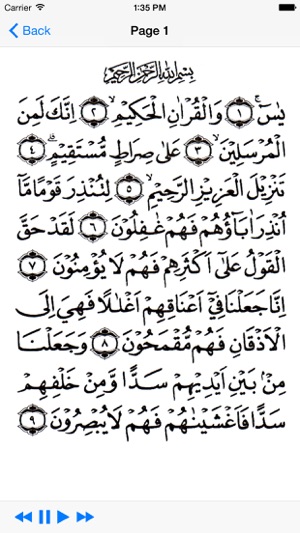 Carrier 1:35 PM
Back Page 1
بِسْمِ اللّٰهِ الرَّحْمٰنِ الرَّحِيْمِ
يٰسٓ ۚ ﴿١﴾ وَالْقُرْاٰنِ الْحَكِيْمِۙ ﴿٢﴾ اِنَّكَ لَمِنَ
الْمُرْسَلِيْنَۙ ﴿٣﴾ عَلٰى صِرَاطٍ مُّسْتَقِيْمٍؕ ﴿٤﴾
تَنْزِيْلَ الْعَزِيْزِ الرَّحِيْمِۙ ﴿٥﴾ لِتُنْذِرَ قَوْمًا مَّاۤ
اُنْذِرَ اٰبَآؤُهُمْ فَهُمْ غٰفِلُوْنَ ﴿٦﴾ لَقَدْ حَقَّ
الْقَوْلُ عَلٰۤى اَكْثَرِهِمْ فَهُمْ لَا يُؤْمِنُوْنَ ﴿٧﴾
اِنَّا جَعَلْنَا فِيْۤ اَعْنَاقِهِمْ اَغْلٰلًا فَهِيَ اِلَى
الْاَذْقَانِ فَهُمْ مُّقْمَحُوْنَ ﴿٨﴾ وَجَعَلْنَا
مِنْۢ بَيْنِ اَيْدِيْهِمْ سَدًّا وَّمِنْ خَلْفِهِمْ
سَدًّا فَاَغْشَيْنٰهُمْ فَهُمْ لَا يُبْصِرُوْنَ ﴿٩﴾